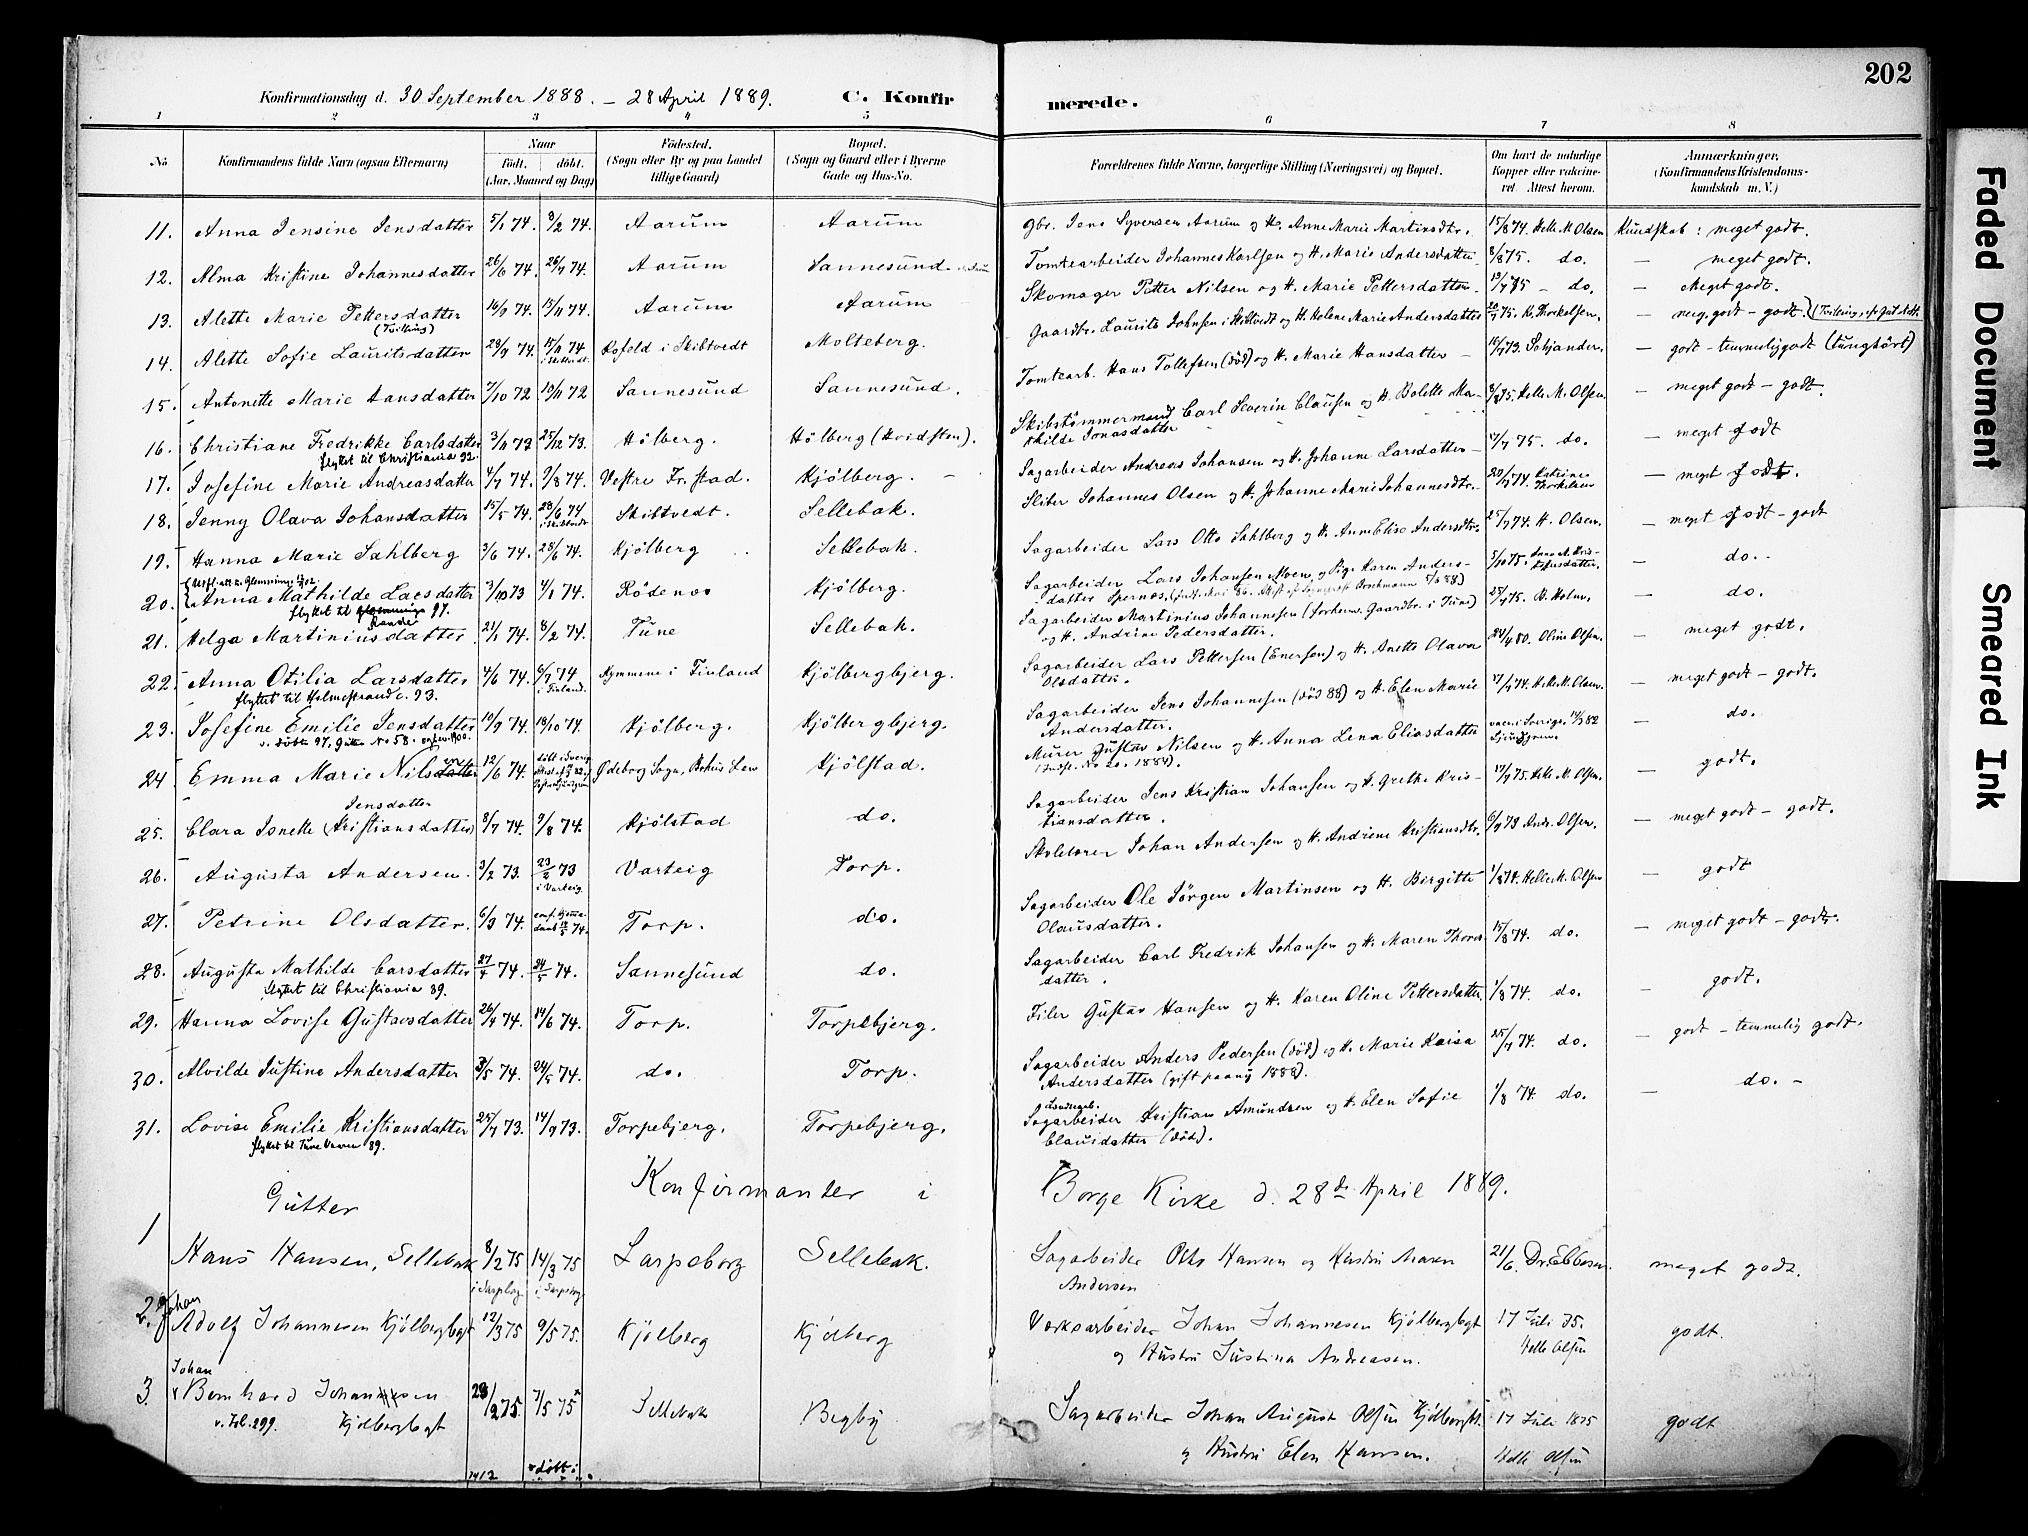 202
Konfirmationsdag d. 30 September 1888. – 28 April 1889.
C. Konfirmerede.
1 2 3 4 5 6 7 8
No
Konfirmandens fulde Navn (ogsaa Efternavn)
Naar
født. døbt.
(Aar, Maaned og Dag)
Fødested.
(Sogn eller By og paa Landet
tillige Gaard)
Bopæl.
(Sogn og Gaard eller i Byerne
Gade og Hus-No.
Forældrenes fulde Navne, borgerlige Stilling (Næringsvei) og Bopæl.
Om havt de naturlige
Kopper eller vaccineret. Attest herom.
Anmærkninger.
(Konfirmandens Kristendomskundskab m. V.)
11. Anna Jensine Jensdatter 5/1 74. 8/2 74. Aarum Aarum Gbr. Jens Syversen Aarum og H. Anne Marie Martinsdtr. 15/8 74. Helle M. Olsen Kundskab: meget godt.
12. Alma Kristine Johannesdatter 26/6 74. 26/7 74. Aarum Sannesund Tomtearbeider Johannes Karlsen og H. Marie Andersdatter 8/8 75. do. – meget godt.
13. Alette Marie Pettersdatter 16/9 74. 15/11 74. Aarum Aarum Skomager Petter Nilsen og H. Marie Pettersdatter – do. – Meget godt.
(Tvilling)
14. Alette Sofie Lauritsdatter 28/9 74. 15/11 74 Kofeld i Skibtvedt Molteberg. Gaardbr. Laurits Johnsen i Skibtvedt og H. Helene Marie Andersdatter 75. K. Thorkelsen. – meg. godt – godt.
15. Antonette Marie Hansdatter 7/10 72 10/11 72 Sannesund Sannesund. Tomtearb. Hans Tollefsen (død) og H. Marie Hansdatter – godt – temmelig godt (tunghørt)
16. Christiane Fredrikke Carlsdatter 3/11 73 25/12 73. Hölberg. Hölberg (Hvidsten). Skibstømmermand Carl Severin Clausen og H. Bolette Mathilde Jonasdatter 8/8 75. Helle M. Olsen. – meget godt – godt.
flyttet til Christiania 92.
17. Josefine Marie Andreasdatter 4/7 74. 9/8 74. Vestre Fr.stad. Kjölberg. Sagarbeider Andreas Johansen og H. Johanne Larsdatter 17/7 75. do. – meget godt
18. Jenny Olava Johansdatter 15/5 74. 28/6 74 Skibtvedt. Sellebak. Sliber Johannes Olsen og H. Johanne Marie Johannesdtr. 20/7 74. Katrine Thorkelsen – meget godt.
19. Hanna Marie Sahlberg 3/6 74. 28/6 74. Kjölberg Sellebak. Sagarbeider Lars Otto Sahlberg og H. Anne Elise Andersdtr. 25/7 74. H. Olsen. – meget godt – godt
20. Anna Mathilde Larsdatter 3/10 73 4/1 74. Rödenes Kjölberg. Sagarbeider Lars Johansen Moen og Pige Karen Andersdatter 5/10 75. – do.
flyttet til Glemminge 97.
21. Helga Martiniusdatter 21/1 74. 8/2 74. Tune Sellebak. Sagarbeider Martinius Johannesen (forhenv. Gaardbr. i Tune)
og H. Andrine Pedersdatter. 25/7 75. H. Holm. – do.
22. Anna Otilia Larsdatter 4/6 74. 6/7 74 Kymmene i Finland Kjölbergbjerg. Sagarbeider Lars Pettersen (Enersen) og H. Anette Olava
Olsdatter. 24/4 80. Oline Olsen. – meget godt.
i Finland.
flyttet til Holmestrand c. 93.
23. Josefine Emilie Jensdatter 19/9 74. 18/10 74. Kjölberg. Kjölbergbjerg. Sagarbeider Jens Johannesen (död 88) og H. Elen Marie
Andersdatter. 17/7 74. H. M. Olsen. – meget godt – godt.
24. Emma Marie Nilsdatter 12/6 74. Ødeborg Sogn, Bohus Len Kjölstad. Murer Gustav Nilsen og H. Anna Lena Eliasdatter
(Indfl. No 20. 1884). – do.
25. Clara Jonette (Kristiansdatter) Jensdatter 8/7 74. 9/8 74. Kjölstad do. Sagarbeider Jens Kristian Johansen og H. Grethe Kristiansdatter. 17/7 75. Helle M. Olsen. – godt.
26. Augusta Andersen. 3/2 73. 23/2 73 Varteig Torp. Skolelærer Johan Andersen og H. Andrine Kristiansdtr. 6/9 73 Andr. Olsen. – meget godt – godt.
i Varteig.
27. Petrine Olsdatter. 6/3 74. Torp. do. Sagarbeider Ole Jörgen Martinsen og H. Birgitte
Olausdatter. 1/8 74. Helle M. Olsen – godt
28. Augusta Mathilde Carsdatter 27/4 74. 24/5 74. Sannesund do. Sagarbeider Carl Fredrik Johansen og H. Maren Thorsdatter. 15/8 74. do. – meget godt – godt.
flyttet til Christiania 89.
29. Hanna Lovise Gustavsdatter 26/4 74. 14/6 74. Torp. Torpebjerg. Filer Gustav Hansen og H. Karen Oline Pettersdatter. 1/8 74. do. – godt.
30. Alvilde Justine Andersdatter 3/5 74. 24/5 74. do. Torp. Sagarbeider Anders Pedersen (död) og H. Marie Kaisa
Andersdatter (gift paany 1888). 25/7 74. do. – godt – temmelig godt.
31. Lovise Emilie Kristiansdatter 25/7 73. 14/9 73. Torpebjerg. Torpebjerg. Sagarbeider Kristian Amundsen og H. Elen Sofie
Clausdatter (död). 1/8 74. do. – do. –
flyttet til Tune 89.
Konfirmanter i Borge Kirke d. 28de April 1889.
Gutter
1 Hans Hansen, Sellebak 8/2 75 14/3 75 Sarpsborg Sellebak. Sagarbeider Otto Hansen og Hustru Maren
Andersen 21/6. Dr. Ebbesen. meget godt.
i Sarpsborg i Sarpsborg
2. Johan Adolf Johannesen Kjölbergbgt 12/3 75 9/5 75. Kjölberg Kjölberg Værksarbeider Johan Johannesen Kjölbergbgt
og Hustru Justina Andreasen. 17 Juli 75. Helle Olsen godt.
3. Johan Bernhard Johannesen 28/2 75. 7/5 75 Sellebak Begby Sagarbeider Johan August Olsen Kjölbergbt.
og Hustru Elen Hansen. 17 Juli 1875 Helle Olsen godt
v. Fol. 299. Kjölbergbgt
Faded Document
Smeared Ink